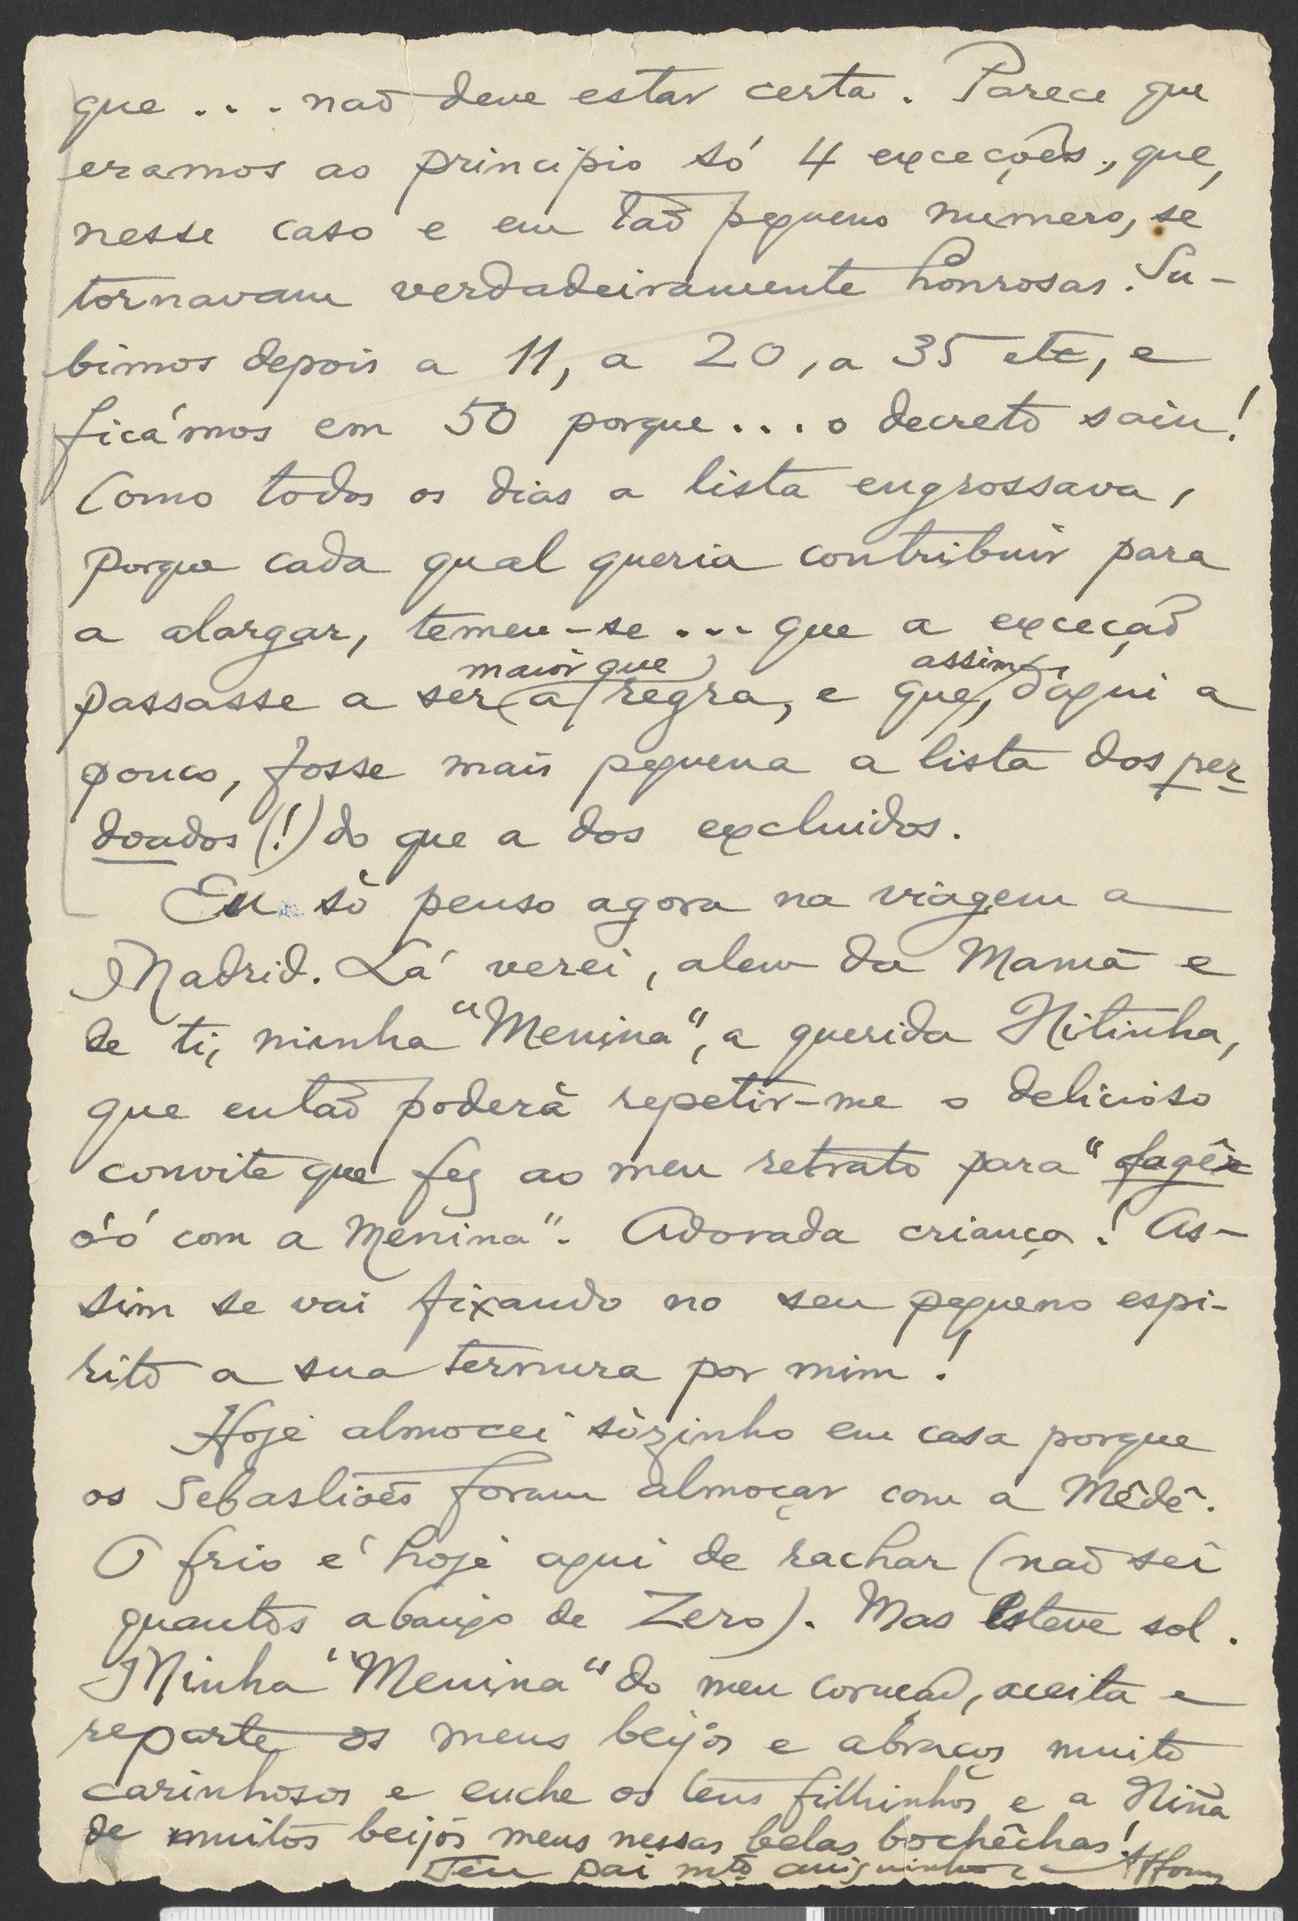 que ... não deve estar certa. Parece que
eramos ao principio só 4 exceções, que,
nesse caso e em tão pequeno numero, se
tornavam verdadeiramente honrosas. Su-
bimos depois a 11, a 20, a 35 etc, e
ficámos em 50 porque .... o decreto saiu!
Como todos os dias a lista engrossava,
porque cada qual queria contribuir para
a alargar, temeu-se ... que a exceção
maior que assim
passasse a ser (a) regra, e que, dáqui a
pouco, fosse mais pequena a lista dos per-
doados (!) do que a dos excluidos.
Eu só penso agora na viagem a
Madrid. Lá verei, alem da Mamã e
de ti, minha "Menina", a querida Nitinha,
que então poderá repetir-me o delicioso
convite que fez ao meu retrato para "fagêr
ó-ó com a Menina". Adorada criança! As-
sim se vai fixando no seu pequeno espi-
rito a sua ternura por mim!
Hoje almocei sòzinho em casa porque
os Sebastiões foram almoçar com a Mêdê.
O frio é hoje aqui de rachar (não sei
quantos abaixo de Zero). Mas esteve sol.
Minha "Menina" do meu coração, aceita e
reparte os meus beijos e abraços muito
carinhosos e enche os teus filhinhos e a Niña
de muitos beijos meus nessas belas bochêchas!
Teu pai mto amiguinho